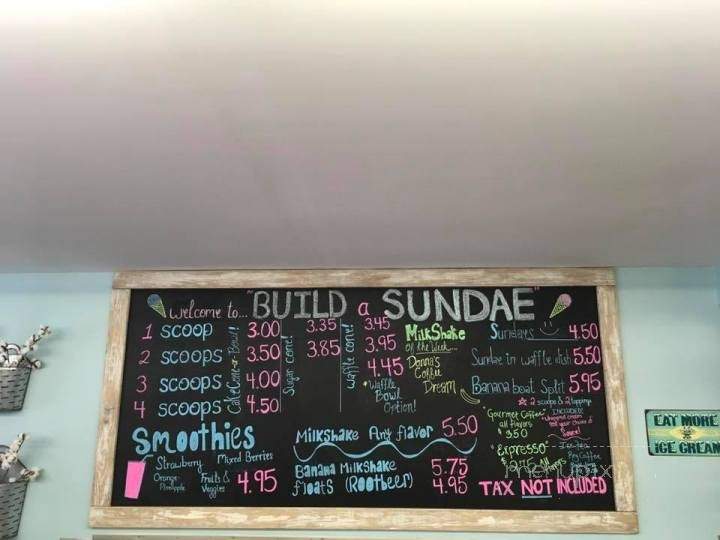 welcome to... "BUILD a SUNDAE"
1 SCOOP 3.00
2 SCOOPS 3.50
3 SCOOPS 4.00
4 SCOOPS 4.50
Cake Cone or Bowl!
3.35
3.85
Sugar cone!
3.45
3.95
4.45
waffle cone!
*Waffle
Bowl
Option!
MilkShake
Of the Week...
Donna's
Coffee
Dream
Sundaes 4.50
Sundae in waffle dish 5.50
Banana boat Split 5.95
2 scoops & 2 toppings
INCLUDED!
"Gourmet Coffee"
all flavors
$3.50
"Espresso"
Smoothies
Strawberry Mixed Berries
Orange-Pineapple
Fruits & Veggies
4.95
Milkshake Any flavor 5.50
Banana Milkshake 5.75
floats (Rootbeer) 4.95
TAX NOT INCLUDED
EAT MORE
ICE CREAM